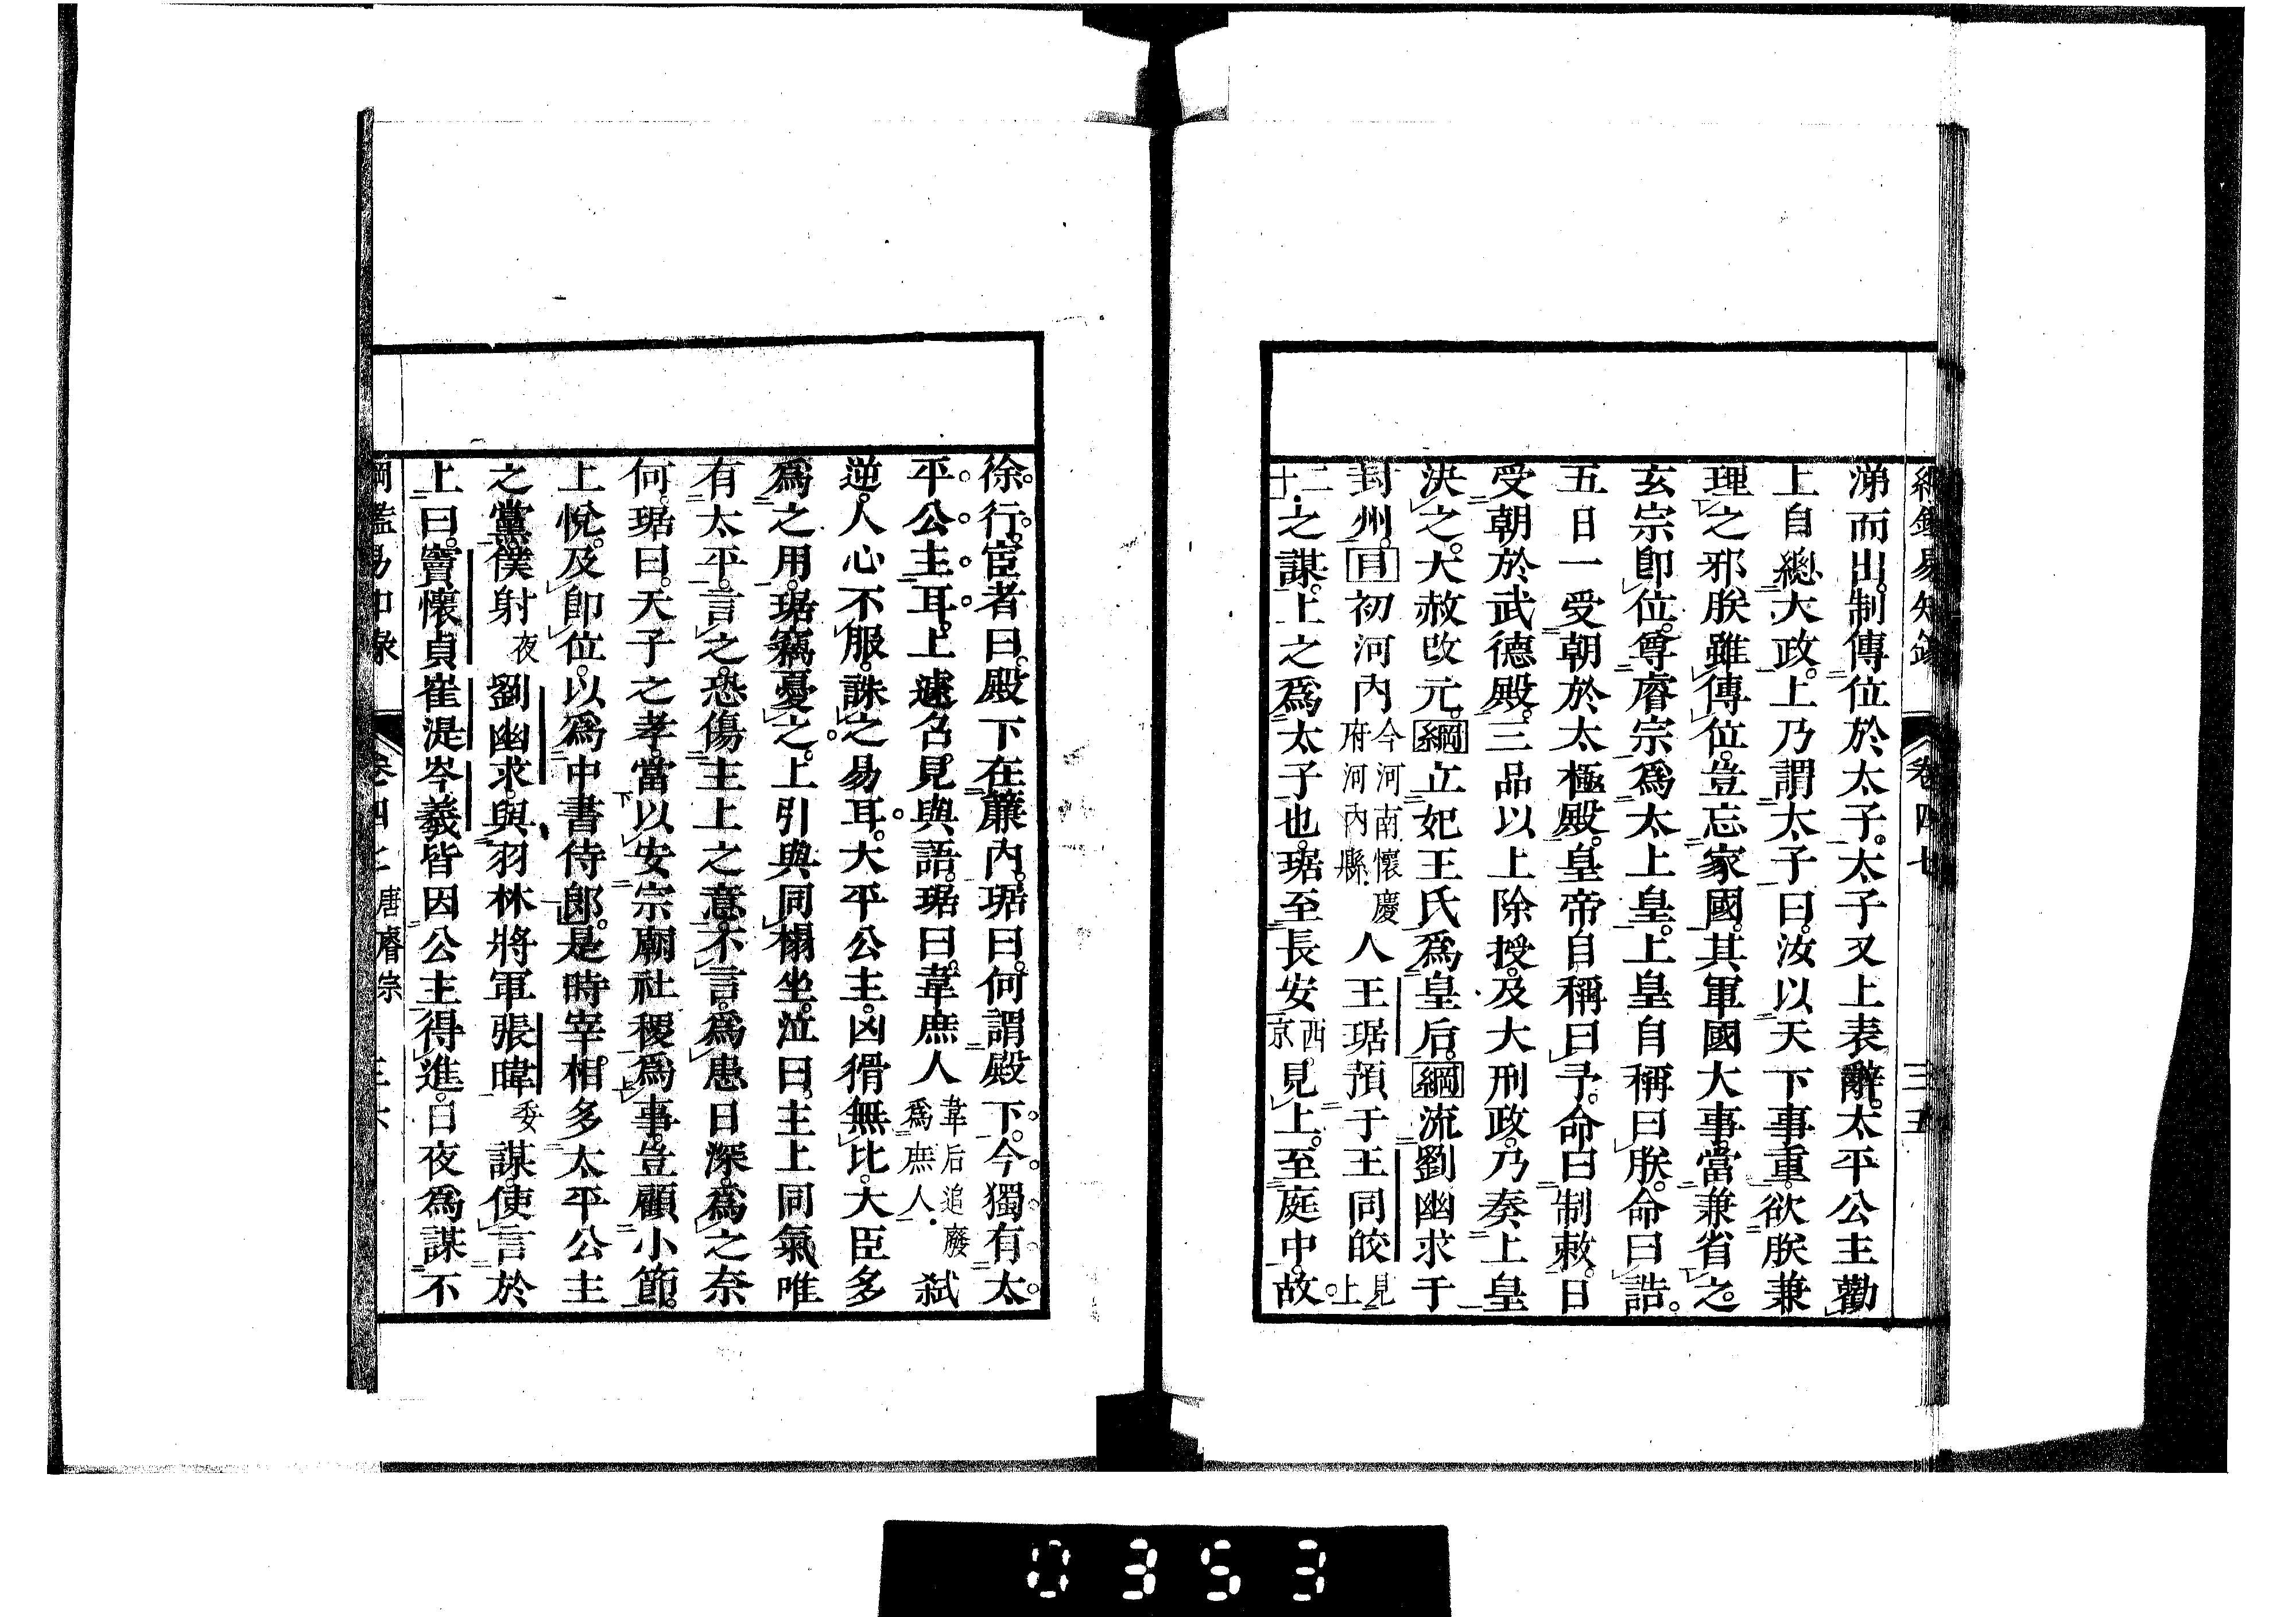 綱鑑易知錄 卷四七 三五
涕而出。制傳位於太子。太子又上表辭。太平公主勸
上自總大政。上乃謂太子曰。汝以天下事重。欲朕兼
理之邪。朕雖傳位。豈忘家國。其軍國大事。當兼省之。
玄宗卽位。尊睿宗爲太上皇。上皇自稱曰朕。命曰誥。
五日一受朝於太極殿。皇帝自稱曰予。命曰制敕。日
受朝於武德殿。三品以上除授。及大刑政。乃奏上皇
決之。大赦改元。綱立妃王氏爲皇后。綱流劉幽求于
封州。目初河內今河南懷慶府河內縣.人王琚預于王同皎見上
二十.之謀。上之爲太子也。琚至長安西京。見上。至庭中。故
徐行。宦者曰。殿下在簾內。琚曰。何謂殿下。今獨有太
平公主耳。上遽召見與語。琚曰。韋庶人韋后追廢爲庶人.弒
逆。人心不服。誅之易耳。太平公主。凶猾無比。大臣多
爲之用。琚竊憂之。上引與同榻坐。泣曰。主上同氣唯
有太平。言之。恐傷主上之意。不言。爲患日深。爲之奈
何。琚曰。天子之孝。當以安宗廟社稷爲事。豈顧小節。
上悅。及卽位。以爲中書侍郞。是時宰相。多太平公主
之黨。僕射夜劉幽求。與羽林將軍張暐委謀。使言於
上曰。竇懷貞崔湜岑羲皆因公主得進。日夜爲謀不
綱鑑易知錄 卷四七 唐睿宗 三六
0353